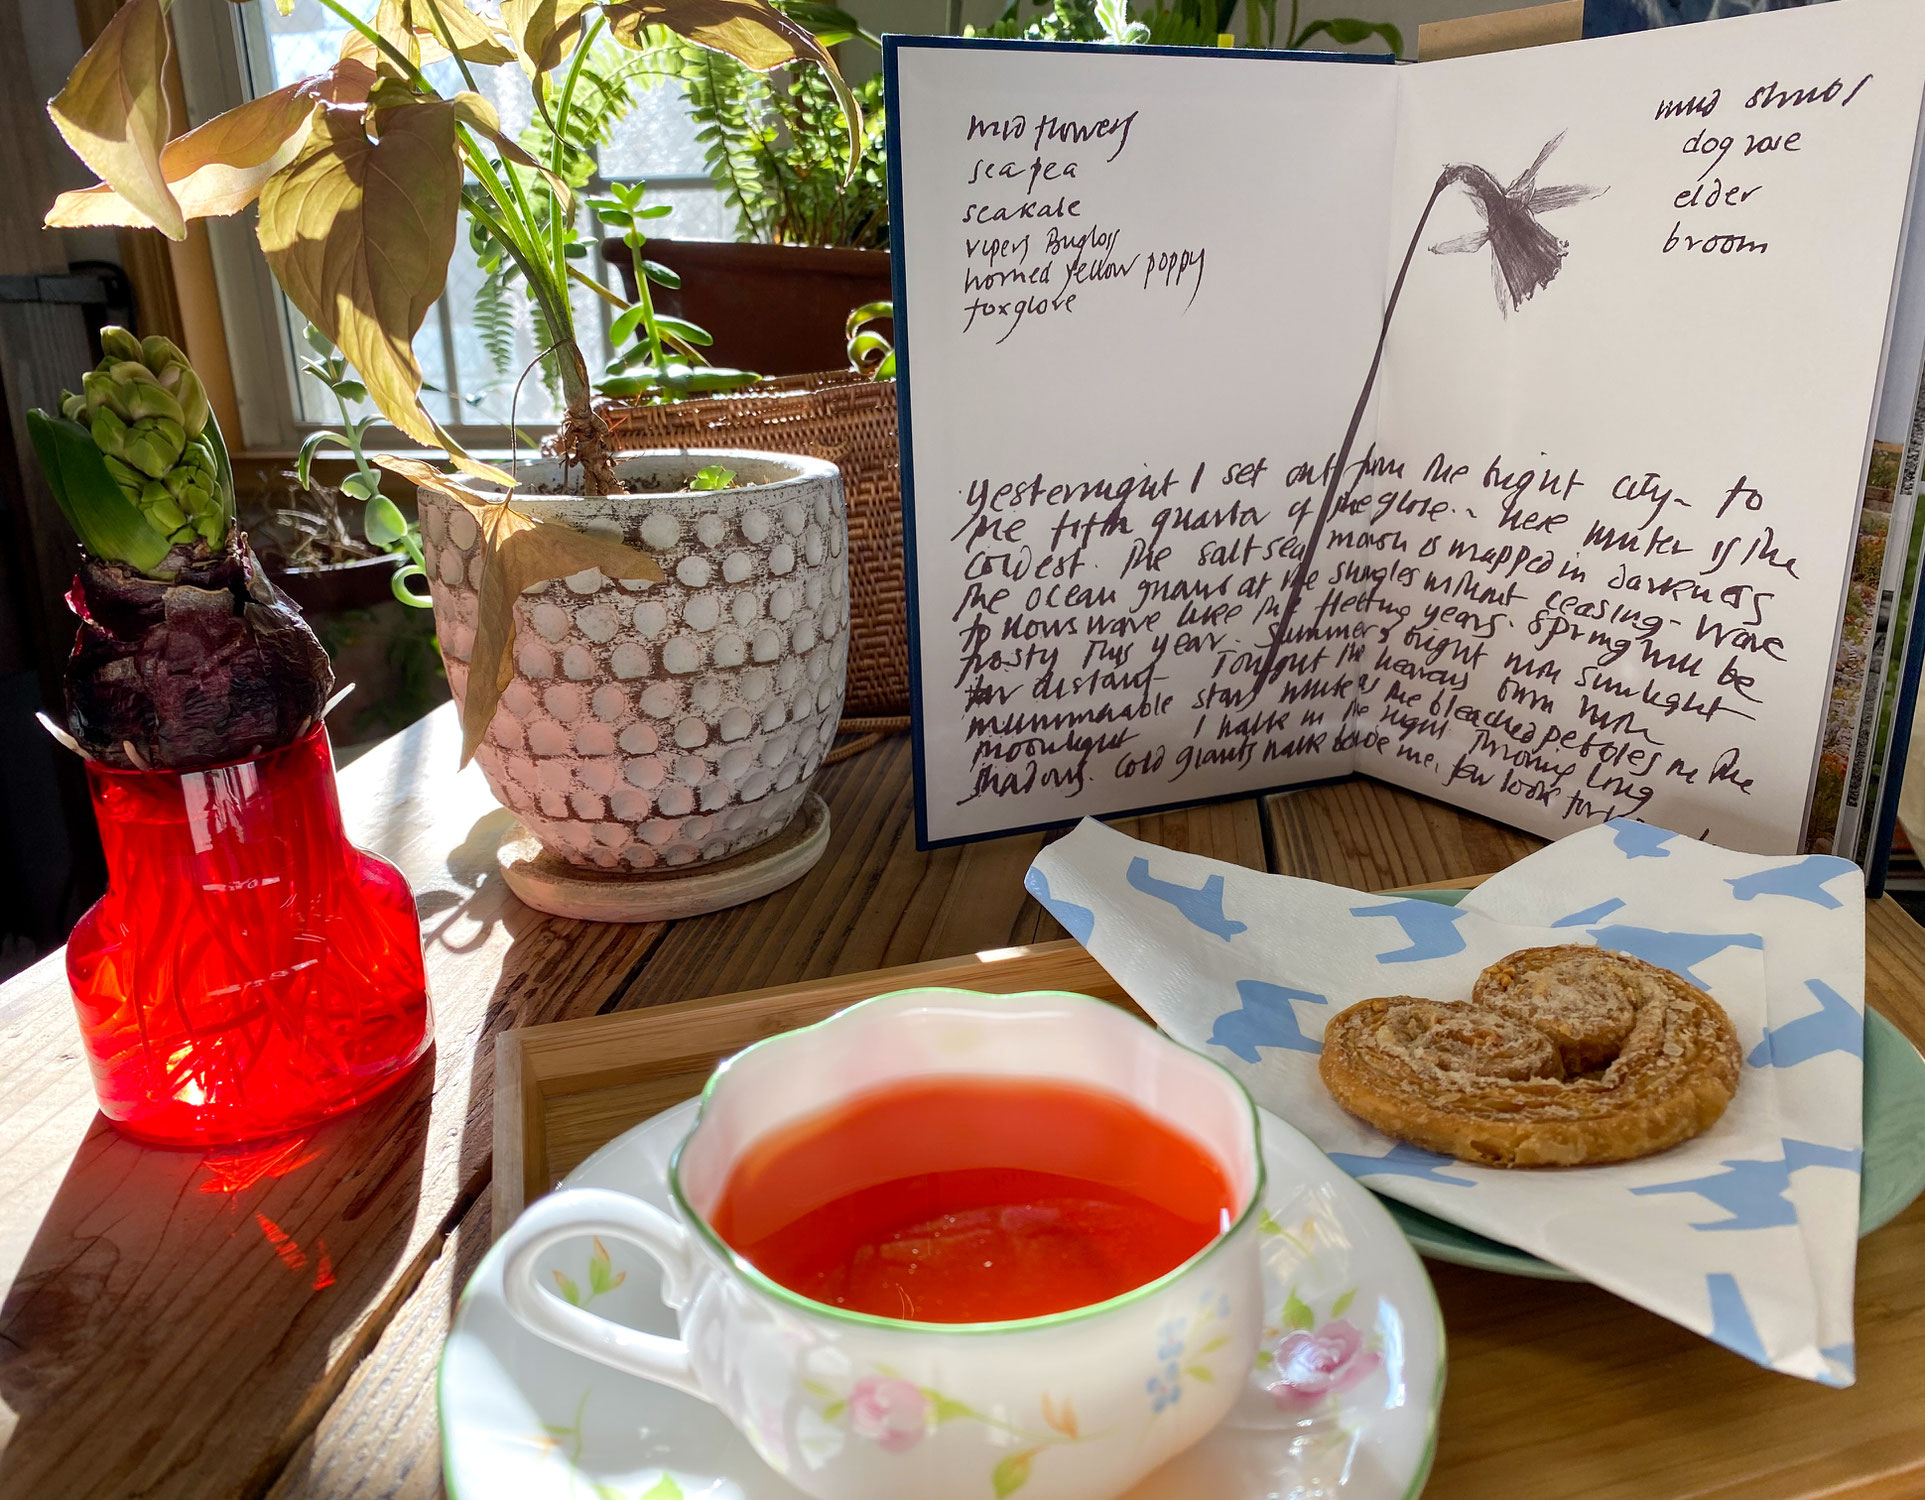 wild flowers
sea pea
seakale
vipers Bugloss
horned yellow poppy
foxglove
wild shrubs
dog rose
elder
broom
Yesternight I set out from the bright city - to
the fifth quarter of the globe - here winter is the
coldest. The salt sea marsh is wrapped in darkness
the ocean gnaws at the shingles without ceasing - wave
follows wave like the fleeting years. Spring will be
frosty this year. Summers bright with sunlight
far distant - Tonight the heavens burn with
innumerable stars white as the bleached pebbles in the
moonlight I walk in the night throwing long
shadows. Cold giants walk beside me. few look